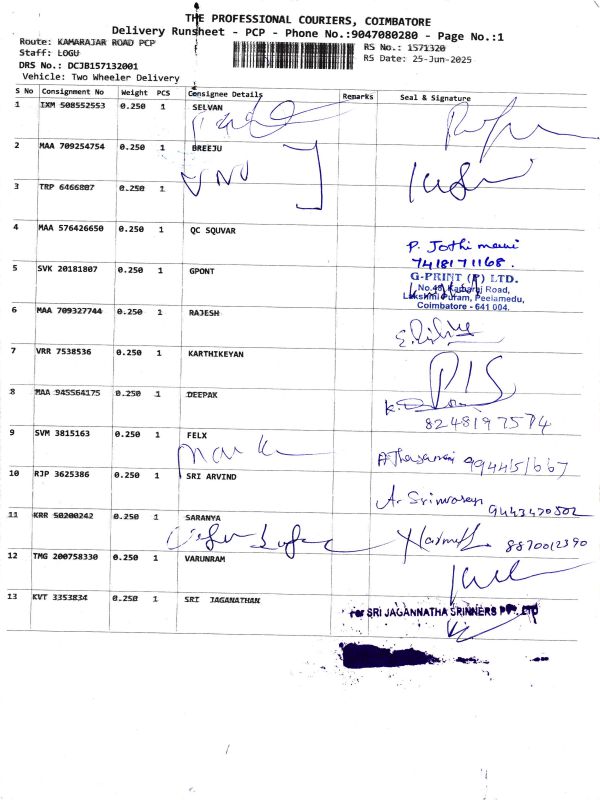 THE PROFESSIONAL COURIERS, COIMBATORE
Delivery Runsheet - PCP - Phone No.:9047080280 - Page No.:1
Route: KAMARAJAR ROAD PCP
RS No.: 1571320
Staff: LOGU
RS Date: 25-Jun-2025
DRS No.: DCJB157132001
Vehicle: Two Wheeler Delivery
S No Consignment No Weight PCS Consignee Details Remarks Seal & Signature
1 IXM 508552553 0.250 1 SELVAN
2 MAA 709254754 0.250 1 BREEJU
3 TRP 6466807 0.250 1
4 MAA 576426650 0.250 1 QC SQUVAR
P. Jothimani
7418171168.
5 SVK 20181807 0.250 1 GPONT
G-PRINT (P) LTD.
No.49, Kamaraj Road,
Lakshmi Puram, Peelamedu,
Coimbatore - 641 004.
6 MAA 709327744 0.250 1 RAJESH
7 VRR 7538536 0.250 1 KARTHIKEYAN
8 MAA 945564175 0.250 1 DEEPAK
8248197574
9 SVM 3815163 0.250 1 FELX
10 RJP 3625386 0.250 1 SRI ARVIND
A. Srinivasan 9443470502
11 KRR 50200242 0.250 1 SARANYA
8870012390
12 TMG 200758330 0.250 1 VARUNRAM
13 KVT 3353834 0.250 1 SRI JAGANATHAN
For SRI JAGANNATHA SRINNERS PVT. LTD